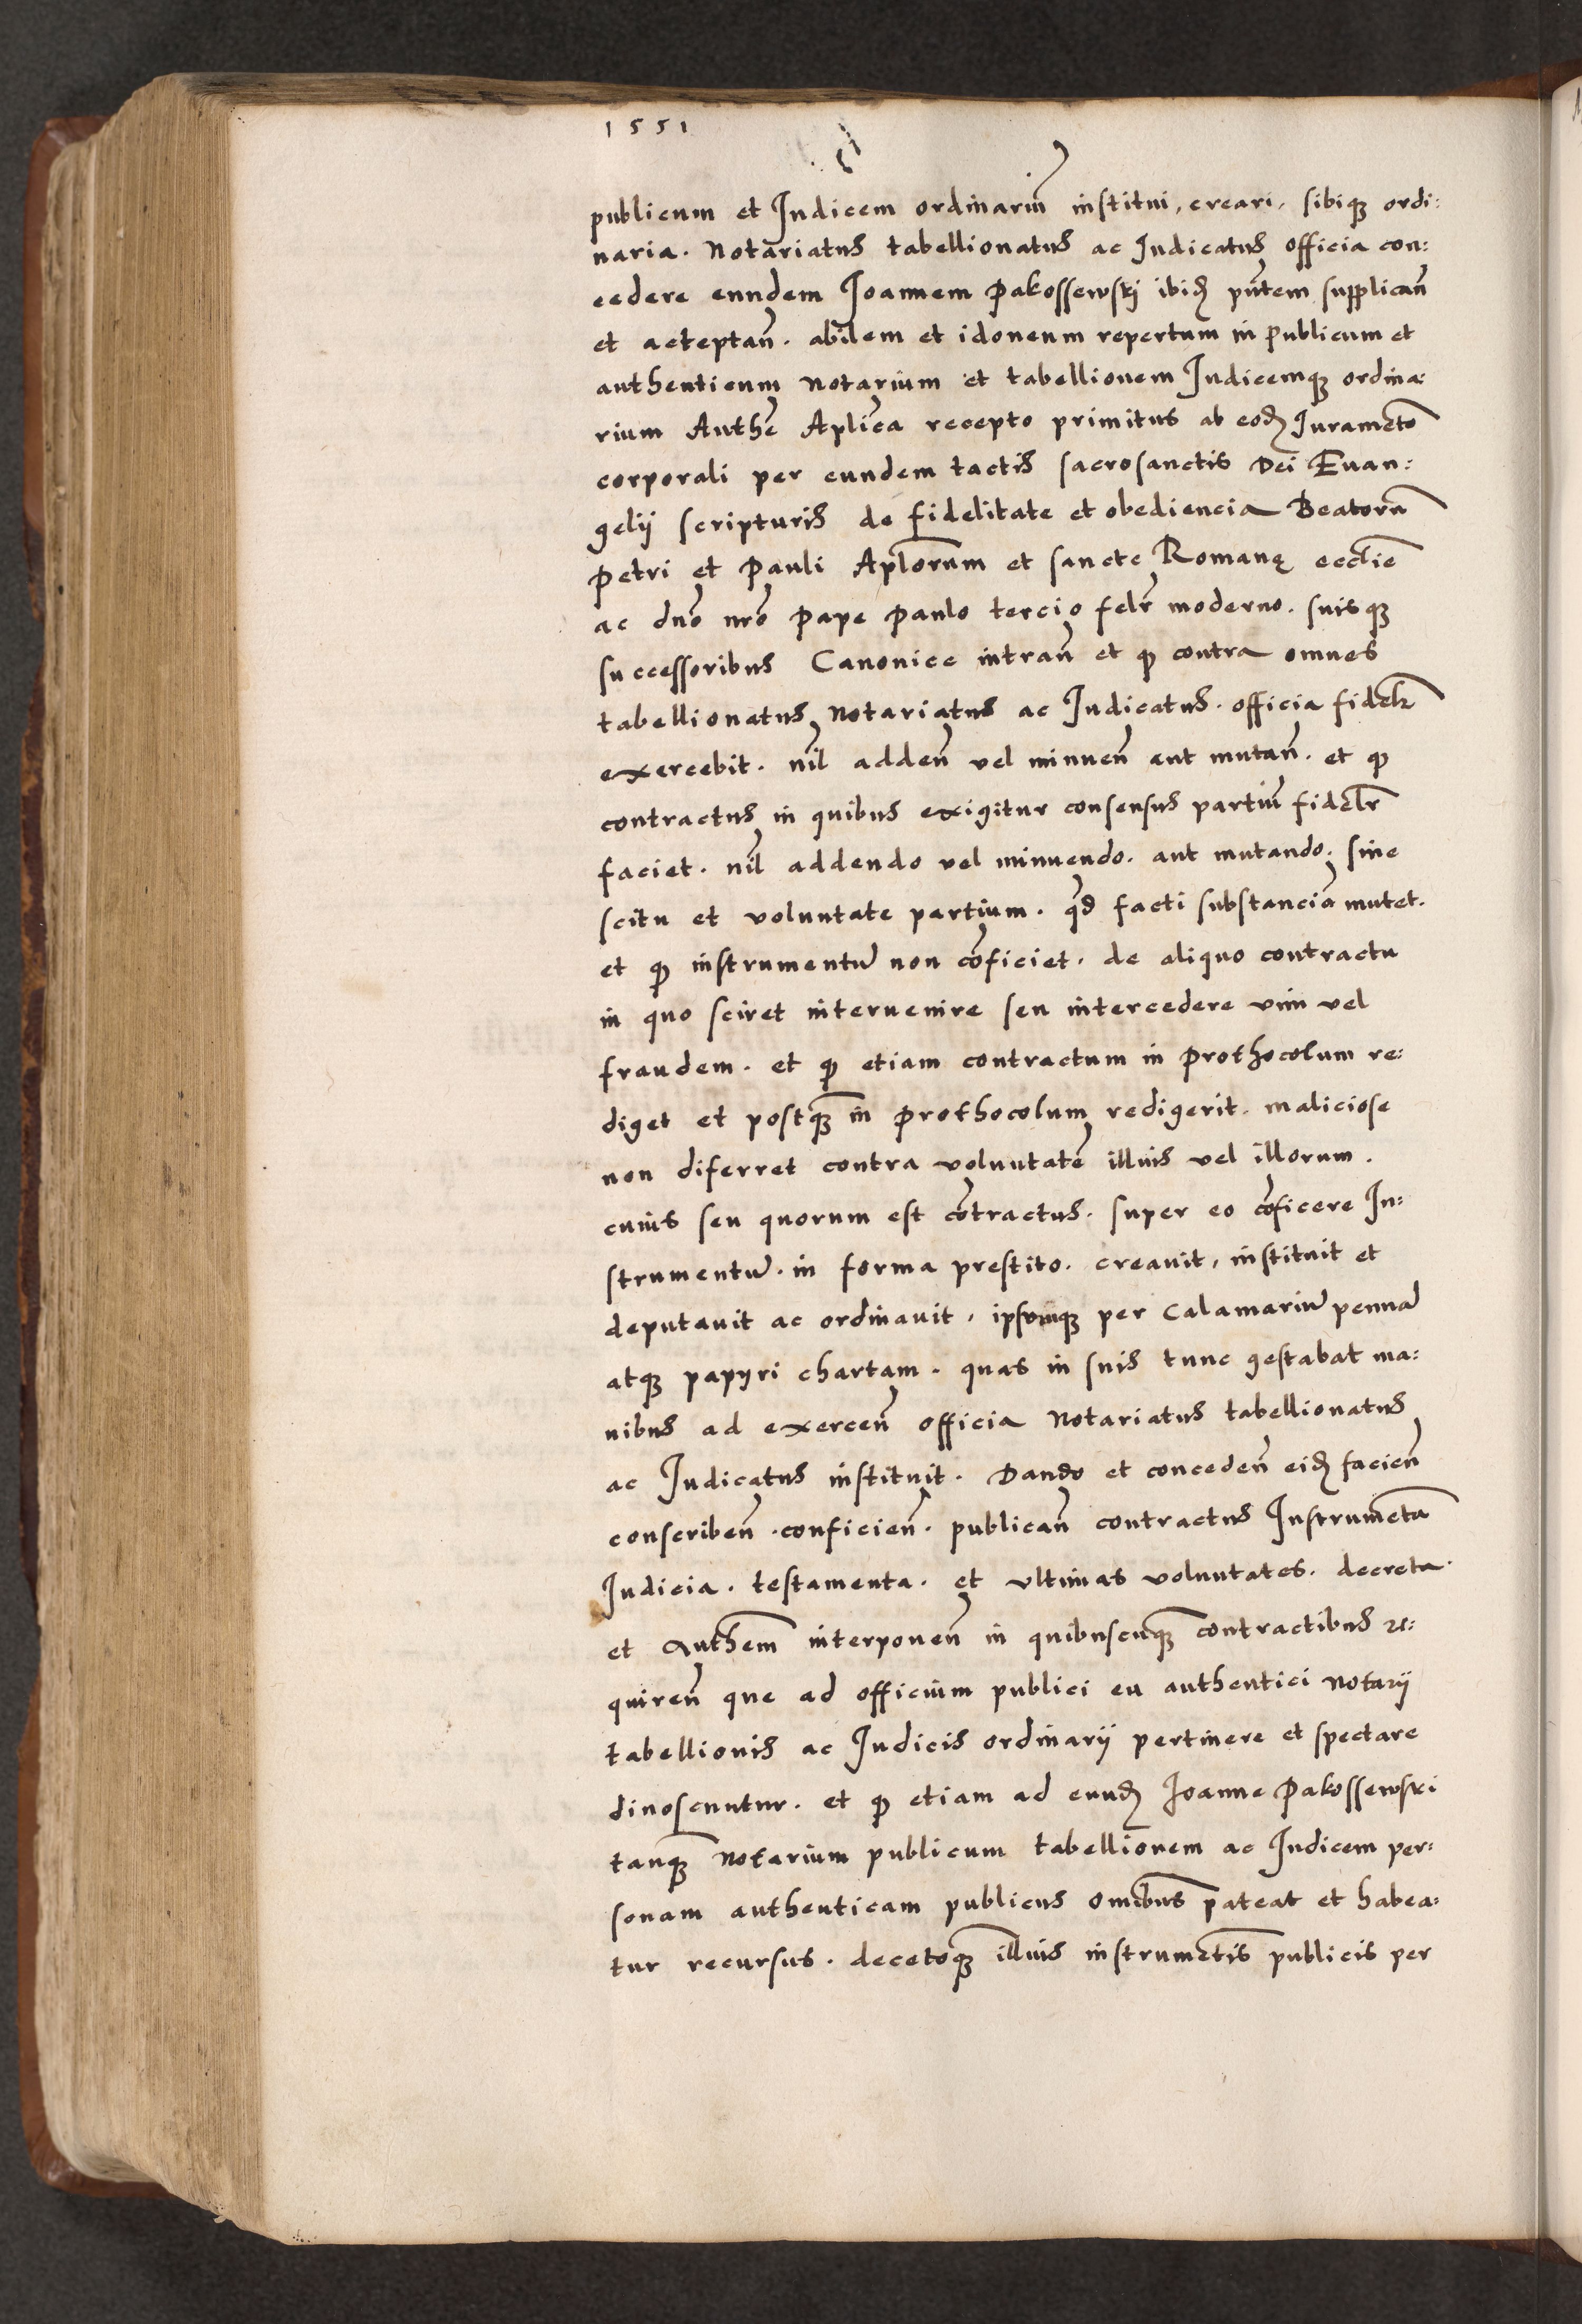 1551
publicum et Judicem ordinariũ institui, creari, sibiqꝫ ordi:
naria. Notariatus tabellionatus ac Judicatus officia con:
cedere eundem Joannem Pakossewski ibiđ pñtem supplicañ
et acteptañ. abilem et idoneum repertum in publicum et
authenticum Notarium et tabellionem Judicemqꝫ ordina:
rium Authẽ Aplica recepto primitus ab eođ Juramẽto
corporali per eundem tactis sacrosanctis Dei Euan:
gelij scripturis de fidelitate et obediencia Beatorũ
Petri et Pauli Aplorum et sancte Romanę ecclie
ac dno nro Pape Paulo tercio felr moderno. suisqꝫ
successoribus Canonice intrañ et ꝙ contra omnes
tabellionatus Notariatus ac Judicatus. officia fidelr
exercebit. nil addeñ vel minueñ aut mutañ. et ꝙ
contractus in quibus exigitur consensus partiũ fidelr
faciet. nil addendo vel minuendo. aut mutando. sine
scitu et voluntate partium. qd facti substanciã mutet.
et ꝙ instrumentũ non cõficiet. de aliquo contractu
in quo sciret interuenire seu intercedere vim vel
fraudem. et ꝙ etiam contractum in Prothocolum re:
diget et postqꝫ in Prothocolum redigerit. maliciose
non diferret contra voluntatẽ illius vel illorum.
cuius seu quorum est cõtractus. super eo cõficere In:
strumentũ. in forma prestito. creauit, instituit et
deputauit ac ordinauit. ipsumqꝫ per Calamariũ pennã
atqꝫ papyri chartam. quas in suis tunc gestabat ma:
nibus ad exerceñ officia Notariatus tabellionatus
ac Judicatus instituit. Dando et concedeñ eiđ facieñ
conscribeñ. conficieñ. publicañ contractus Instrumẽta
Judicia. testamenta. et vltimas voluntates. decreta.
et Authem interponeñ in quibuscuqꝫ contractibus re:
quireñ que ad officium publici eu authentici Notarij
tabellionis ac Judicis ordinarij pertinere et spectare
dinoscuntur. et ꝙ etiam ad eunđ Joanne Pakossewski
tanqꝫ Notarium publicum tabellionem ac Judicem per:
sonam authenticam publicus omibus pateat et habea:
tur recursus. decetoqꝫ illius instrumẽtis publicis per